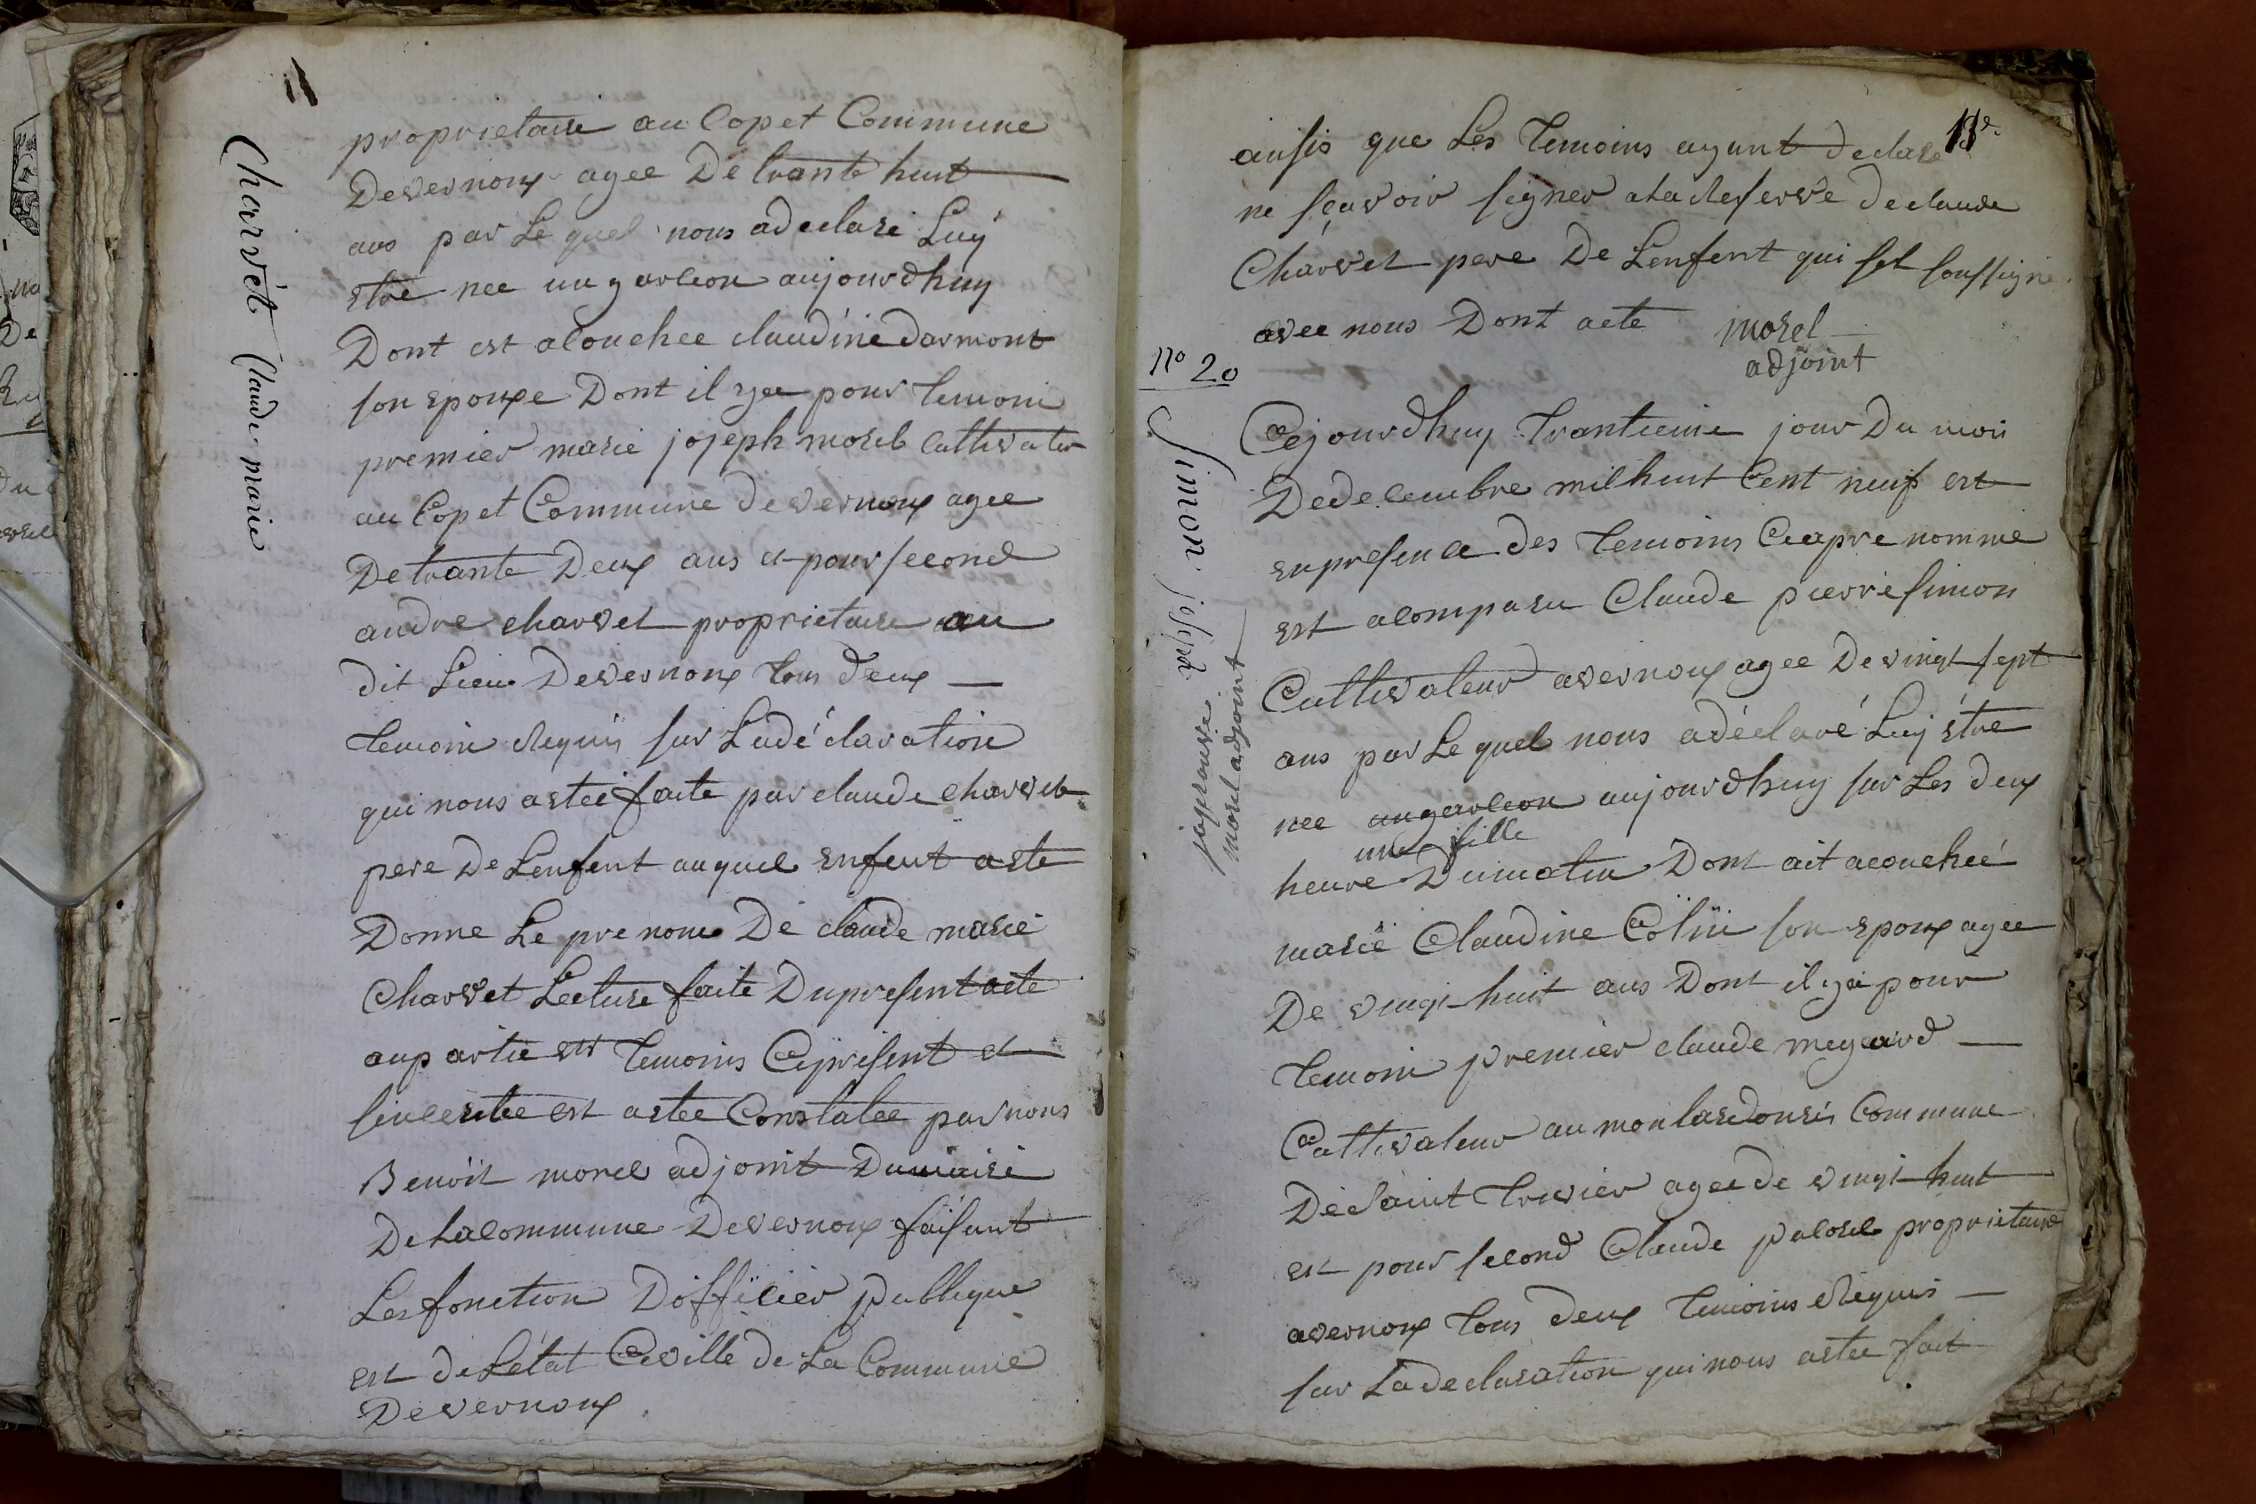 11
Charvet Claude marie
proprietaire au Copet Commune
Devernoux agee De trante huit
ans par Le quel nous a declaré Luy
etre nee un garcion aujourdhuy
Dont est acouchee claudine darmont
son epouxe Dont il yee pour temoin
premier marie joseph morel Cultivater
au Copet Commune devernoux agee
De trante Deux ans et pour second
andre charvet proprietaire au
dit Lieu Devernoux tous deux
temoin Requis sur La dé claration
qui nous a etee faite par claude charvet
pere De Lenfent auquel enfent a ete
Donne Le pre nom De claude marie
Charvet Lecture faite Du present acte
au partie et temoins Cy present et
sinceritee est a etee Constatée par nous
Benoit morel adjoint Dumaire
De La commune Devernoux faisant
Les fonction Dofficier publique
est de Létat Civille de La Commune
De vernoux
11e.
ainsis que Les temoins ayant declare
ne seavoir signer a la Reserve De claude
Charvet pere De Lenfent qui set soussigné
avec nous Dont acte morel
adjoint
no 20
Simon joseph
japrouve
morel adjoint
Cejourdhuy trantieme jour Du mois
De decembre mil huit Cent neuf est
en presence des temoins Ci apre nommé
est acomparu Claude pierre simon
Cultivateur avernoux agee De vingt sept
ans par Le quel nous a déclaré Luy étre
nee un garcion aujourdhuy sur Les deux
une fille
heure Dumatin Dont ait acouchéé
marie Claudine Colin son epoux agee
De vingt huit ans Dont il ya pour
temoin premier claude meyard
Cultivateur au montardonsis Commune
De Saint trivier agee de vingt huit
est pour second Claude palosel proprietaire
avernoux tous deux temoins Requis
sur La declaration qui nous a etee fait